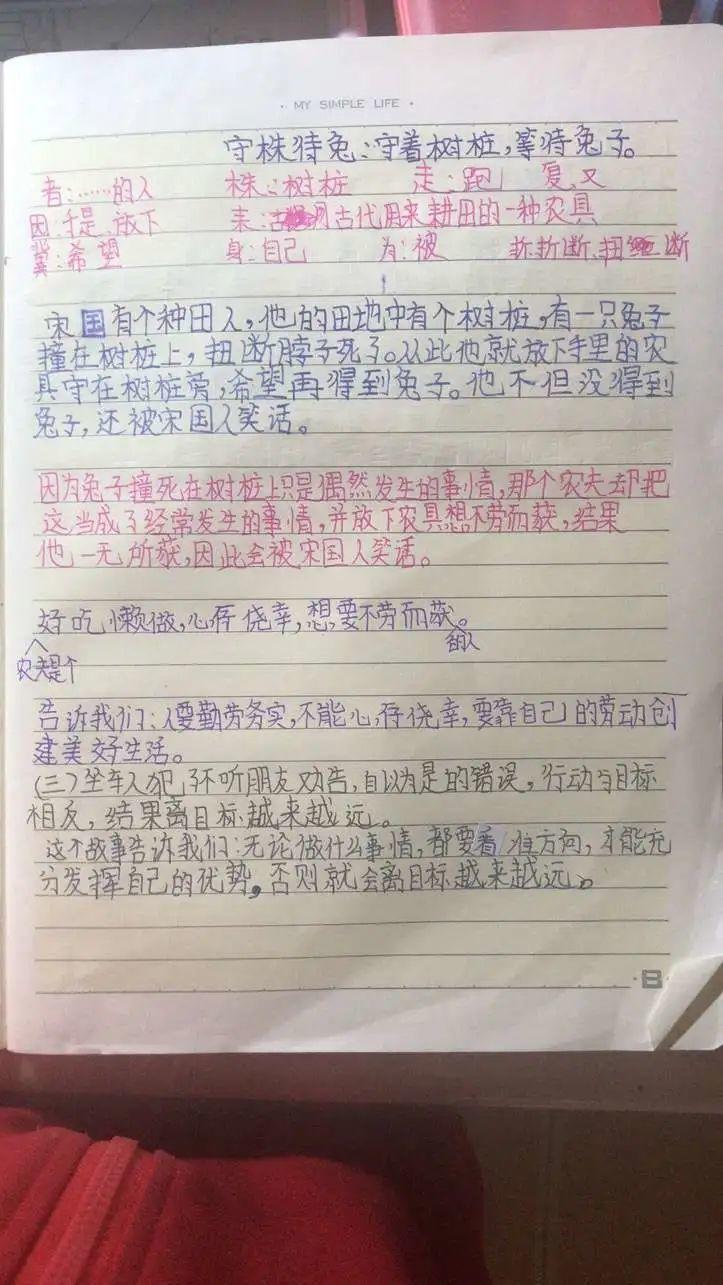 · MY SIMPLE LIFE ·
守株待兔：守着树桩，等待兔子。
者：……的人 株：树桩 走：跑 复：又
因：于是 放下 耒：古代用来耕田的一种农具
冀：希望 身：自己 为：被 折：折断、扭断
宋国有个种田人，他的田地中有个树桩，有一只兔子
撞在树桩上，扭断脖子死了。从此他就放下手里的农
具守在树桩旁，希望再得到兔子。他不但没得到
兔子，还被宋国人笑话。
因为兔子撞死在树桩上只是偶然发生的事情，那个农夫却把
这当成了经常发生的事情，并放下农具想不劳而获，结果
他一无所获，因此会被宋国人笑话。
好吃懒做，心存侥幸，想要不劳而获。
农夫是个 的人
告诉我们：人要勤劳务实，不能心存侥幸，要靠自己的劳动创
建美好生活。
（三）坐车人犯了不听朋友劝告，自以为是的错误，行动与目标
相反，结果离目标越来越远。
这个故事告诉我们：无论做什么事情，都要看准方向，才能充
分发挥自己的优势，否则就会离目标越来越远。